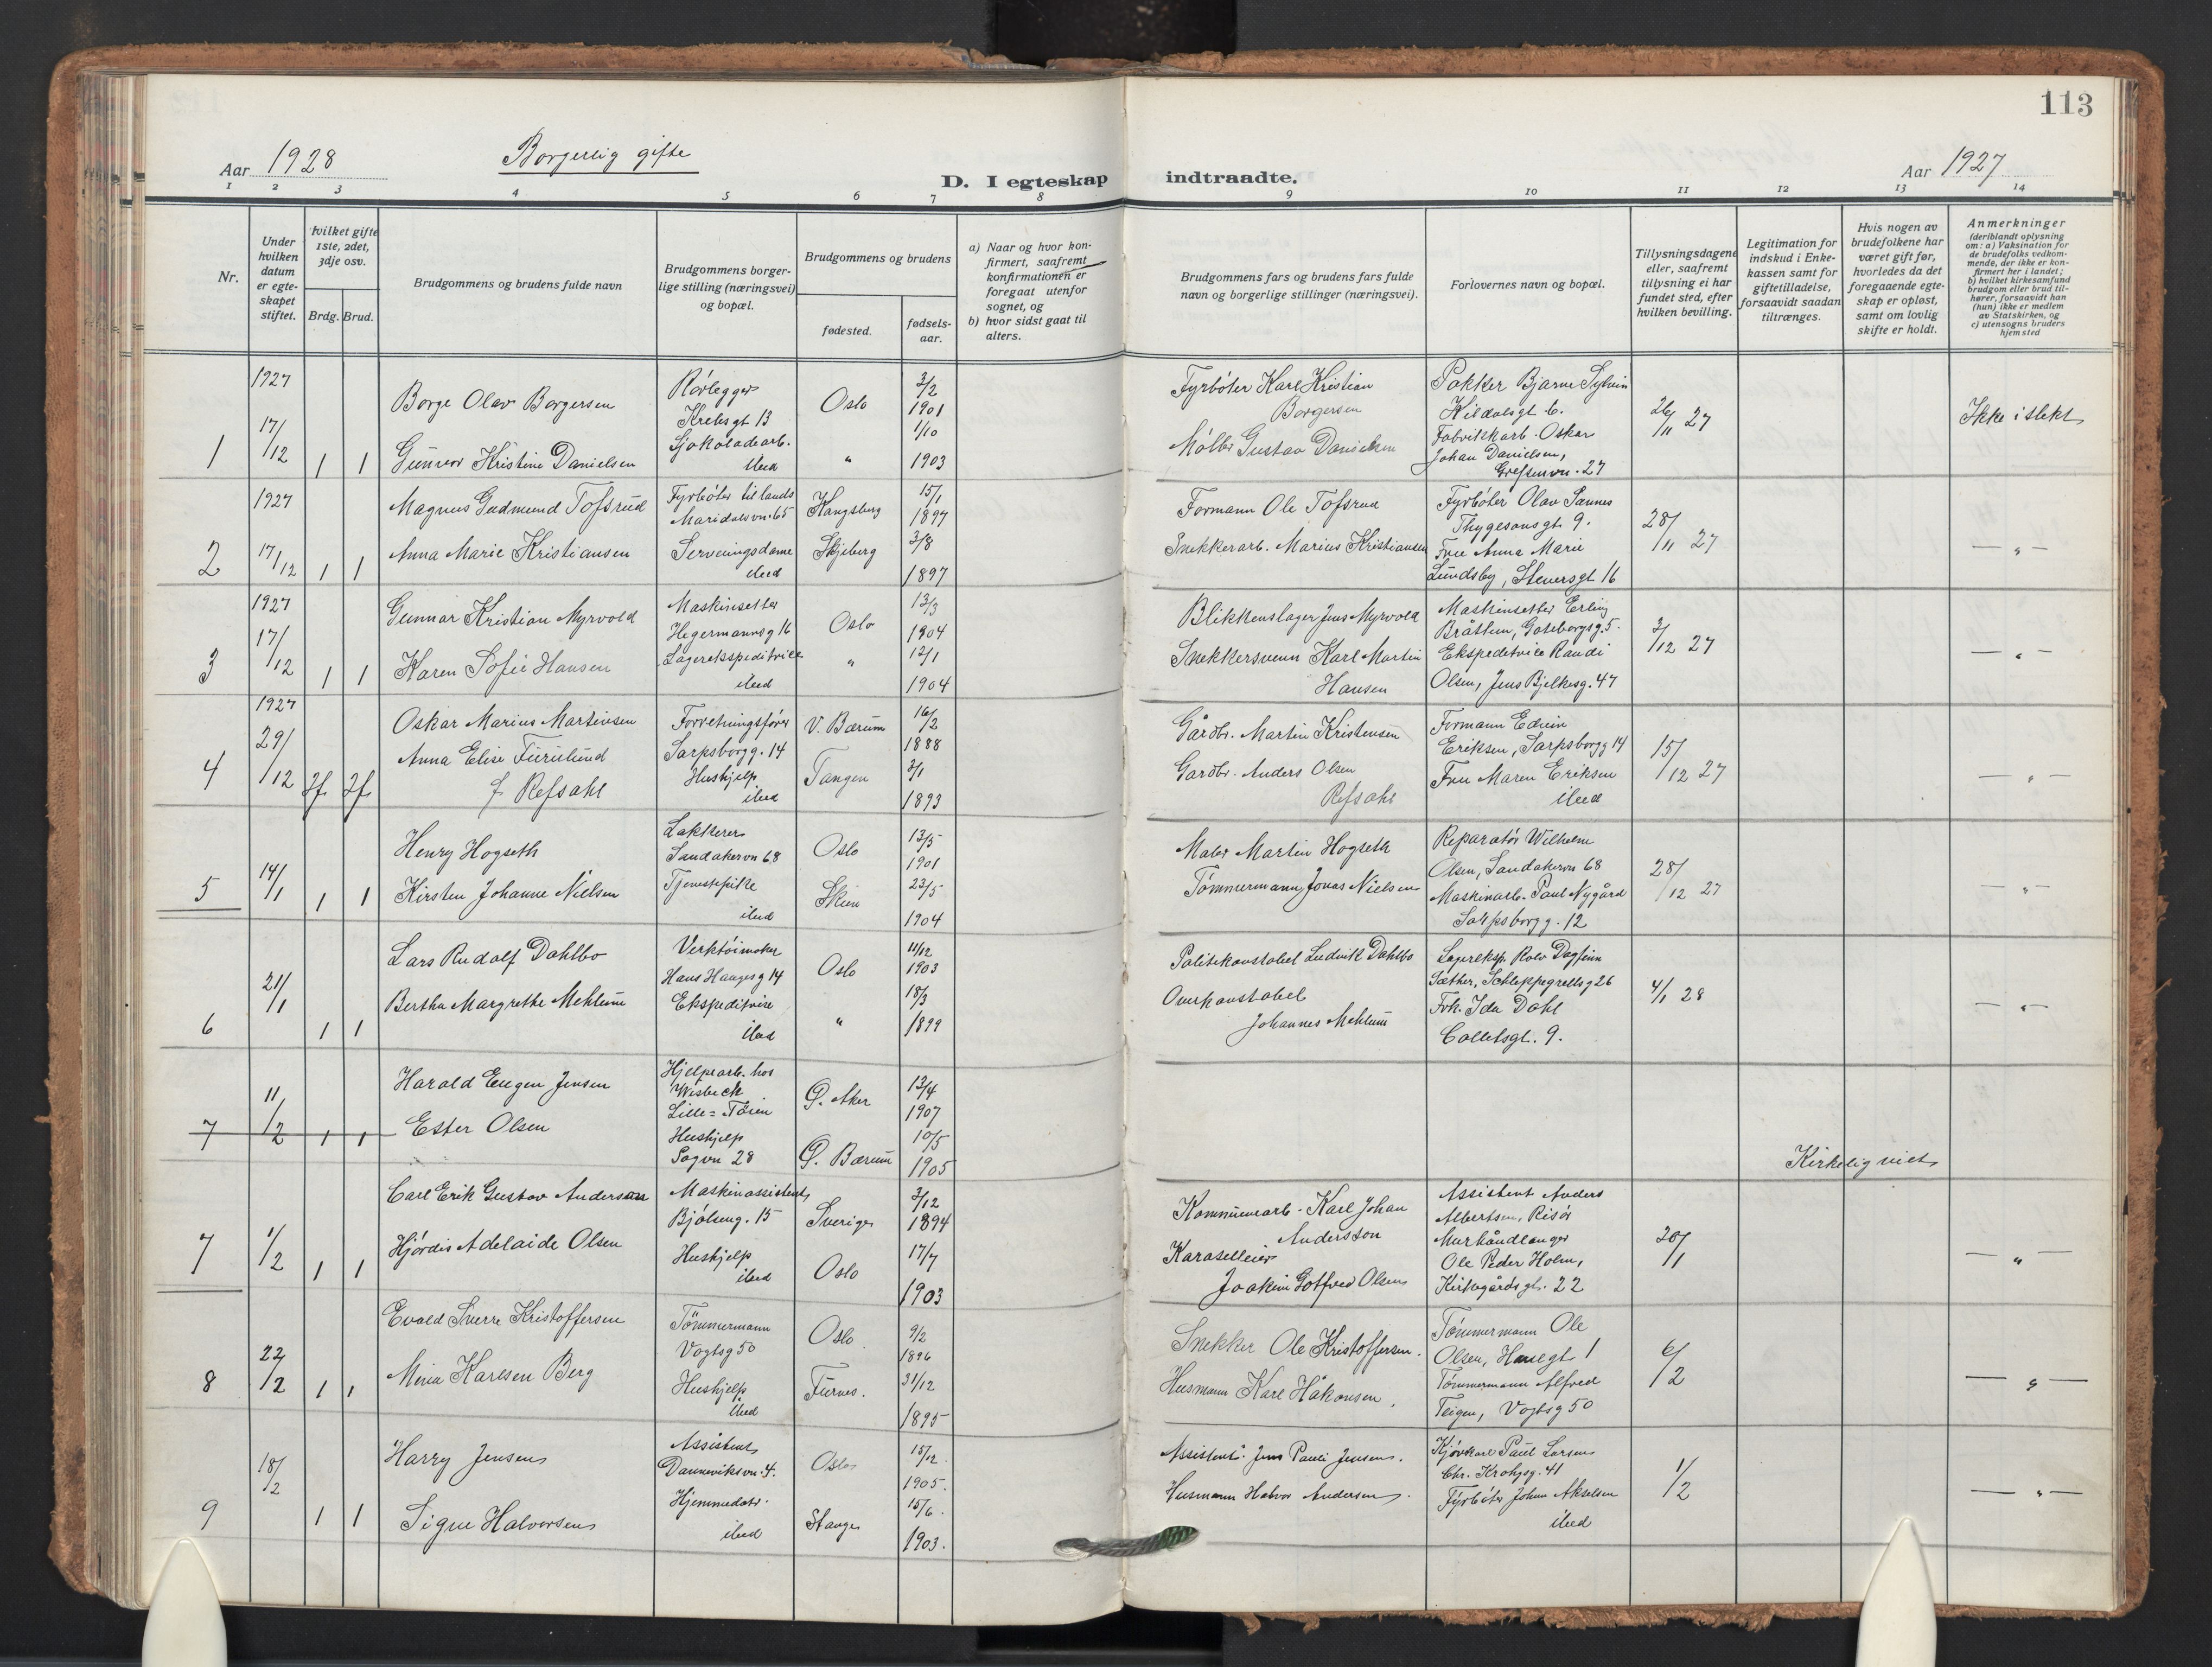 113
Aar 1928
Borgerlig gifte
D. I egteskap indtraadte.
Aar 1927
1 2 3 4 5 6 7 8 9 10 11 12 13 14
Nr.
Under hvilken datum er egteskapet stiftet.
hvilket gifte 1ste, 2det, 3dje osv.
Brdg. Brud.
Brudgommens og brudens fulde navn
Brudgommens borgerlige stilling (næringsvei) og bopæl.
Brudgommens og brudens
fødested.
fødselsaar.
a) Naar og hvor konfirmert, saafremt konfirmationen er foregaat utenfor sognet, og
b) hvor sidst gaat til alters.
Brudgommens fars og brudens fars fulde navn og borgerlige stillinger (næringsvei).
Forlovernes navn og bopæl.
Tillysningsdagene eller, saafremt tillysning ei har fundet sted, efter hvilken bevilling.
Legitimation for indskud i Enkekassen samt for giftetilladelse, forsaavidt saadan tiltrænges.
Hvis nogen av brudefolkene har været gift før, hvorledes da det foregaaende egteskap er opløst, samt om lovlig skifte er holdt.
Anmerkninger
(deriblandt oplysning om: a) Vaksination for de brudefolks vedkommende, der ikke er konfirmert her i landet; b) hvilket kirkesamfund brudgom eller brud tilhører, forsaavidt han (hun) ikke er medlem av Statskirken, og c) utensogns bruders hjemsted
1
1927
17/12
1 1
Borge Olav Borgersen
Gunvor Kristine Danielsen
Rørlegger
Krebsgt 13
Sjokoladearb.
ibid
Oslo
"
3/2
1901
1/10
1903
Fyrbøter Karl Kristian
Borgersen
Møller Gustav Danielsen
Pakker Bjarne
Kildalsgt 6.
Fabrikkarb. Oskar
Johan Danielsen,
Grefsenvn. 27
26/11 27
Ikke i slekt
2
1927
17/12
1 1
Magnus Gudmund Tofsrud
Anna Marie Kristiansen
Fyrbøter til lands
Maridalsvn. 65
Serveringsdame
ibid
Kongsberg
Skjeberg
15/1
1897
3/8
1897
Formann Ole Tofsrud
Snekkerarb. Marius Kristiansen
Fyrbøter Olav Sannes
Thygesonsgt 9.
Fru Anna Marie
Lundsby, Steversgt 16
28/11 27
— " —
3
1927
17/12
1 1
Gunnar Kristian Myrvold
Karen Sofie Hansen
Maskinsetter
Hegermannsg 16
Lagerekspeditrice
ibid
Oslo
"
13/3
1904
12/1
1904
Blikkenslager Jens Myrvold
Snekkersvenn Karl Martin
Hansen
Maskinsetter Erling
Bråthen, Gøteborgsg. 5.
Ekspeditrice Randi
Olsen, Jens Bjelkesg. 47
3/12 27
— " —
4
1927
29/12
Oskar Marius Martinsen
Anna Elise Furulund
f. Refsahl
Forretningsfører
Sarpsborgg. 14
Hushjelp
ibid
V. Bærum
Tangen
16/2
1888
3/1
1893
Gårdbr. Martin Kristensen
Gårdbr. Anders Olsen
Refsahl
Formann Edvin
Eriksen, Sarpsborgg 14
Fru Maren Eriksen
ibid
15/12 27
— " —
5
14/1
1 1
Henry Hogseth
Kirsten Johanne Nielsen
Lakkerer
Sandakervn 68
Tjenestepike
ibid
Oslo
Skien
13/5
1901
22/5
1904
Maler Martin Hogseth
Tømmermann Jonas Nielsen
Reparatør Wilhelm
Olsen, Sandakervn 68
Maskinarb. Paul Nygård
Sarpsborgg. 12
28/12 27
— " —
6
21/1
1 1
Lars Rudolf Dahlbo
Bertha Margrethe Mehlum
Verktøimaker
Hans Haugesg 14
Ekspeditrise
ibid
Oslo
"
11/12
1903
18/3
1899
Politikonstabel Ludvik Dahlbo
Overkonstabel
Johannes Mehlum
Lagereksp. Rolv Dagfinn
Sæther, Schleppegrellsg 26
Frk. Ida Dahl
Colletsgt. 9.
4/1 28
— " —
7
11/2
1 1
Harald Eugen Jensen
Ester Olsen
Hjelpearb. hos
Wisbeck
Lille-Tøien
Hushjelp
Sagvn 28
Ø. Aker
Ø. Bærum
13/4
1907
10/5
1905
Kirkelig viet
7
1/2
1 1
Carl Erik Gustav Andersson
Hjørdis Adelaide Olsen
Maskinassistent
Bjølseng. 15
Hushjelp
ibid
Sverige
Oslo
3/12
1894
17/7
1903
Kommunearb. Karl Johan
Andersson
Karaselleier
Joakim Gotfred Olsen
Assistent Anders
Albertsen, Risør
Murhåndlanger
Ole Peder Holm,
Kirkegårdsgt. 22
20/1
— " —
8
22/2
1 1
Evald Sverre Kristoffersen
Mina Karlsen Berg
Tømmermann
Vogtsg 50
Hushjelp
ibid
Oslo
Furnes.
9/2
1896
31/12
1895
Snekker Ole Kristoffersen.
Husmann Karl Håkonsen,
Tømmermann Ole
Olsen, 1
Tømmermann Alfred
Teigen, Vogtsg 50
6/2
— " —
9
18/2
1 1
Harry Jensen
Signe Halvorsen
Assistent
Dannviksvn. 4.
Hjemmedatr.
ibid
Oslo
Stange
15/12
1905.
15/6.
1903.
Assistent Jens Pauli Jensen.
Husmann Halvor Andersen.
Kjørekarl Paul Larsen
Chr. Krohgsg. 41
Fyrbøter Johan Akselsen
ibid
1/2
— " —